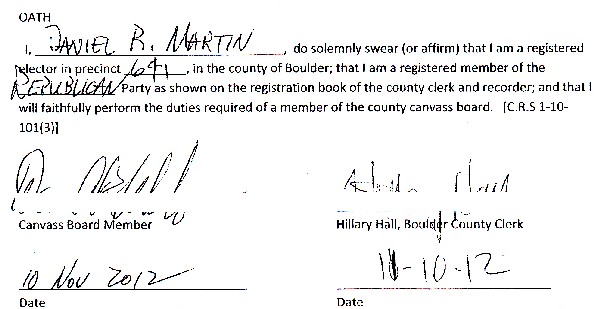 OATH
I, DANIEL R. MARTIN, do solemnly swear (or affirm) that I am a registered
elector in precinct 641, in the county of Boulder; that I am a registered member of the
REPUBLICAN Party as shown on the registration book of the county clerk and recorder; and that I
will faithfully perform the duties required of a member of the county canvass board. [C.R.S 1-10-
101(3)]
Canvass Board Member
Hillary Hall, Boulder County Clerk
10 Nov 2012
11-10-12
Date
Date